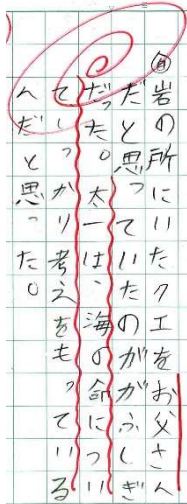 ㊐岩の所にいたクエをお父さん
だと思っていたのががふしぎ
だった。太一は、海の命につい
てしっかり考えをもっている
んだと思った。